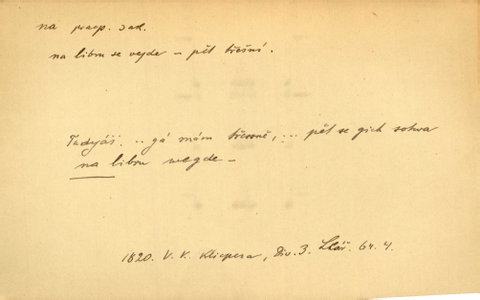 na praep. s ak.
na libru se vejde – pět třešní.
Tadyáš ... gá mám třessně, ... pět se gich sotwa
na libru wegde –
1820. V. K. Klicpera, Div. 3. 64. 4.